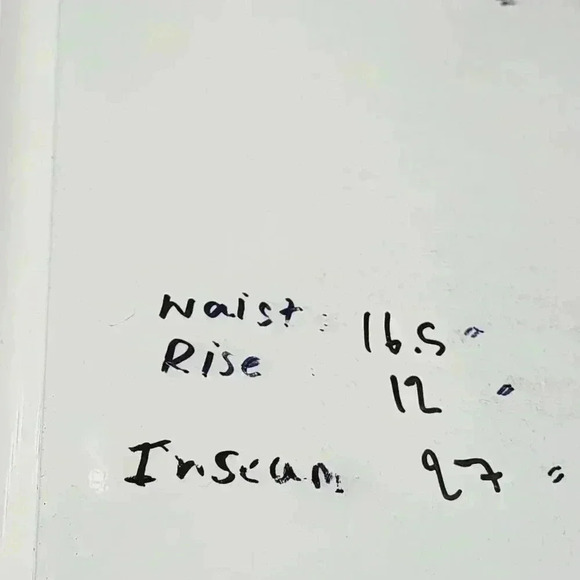 Waist: 16.5"
Rise 12"
Inseam 27"